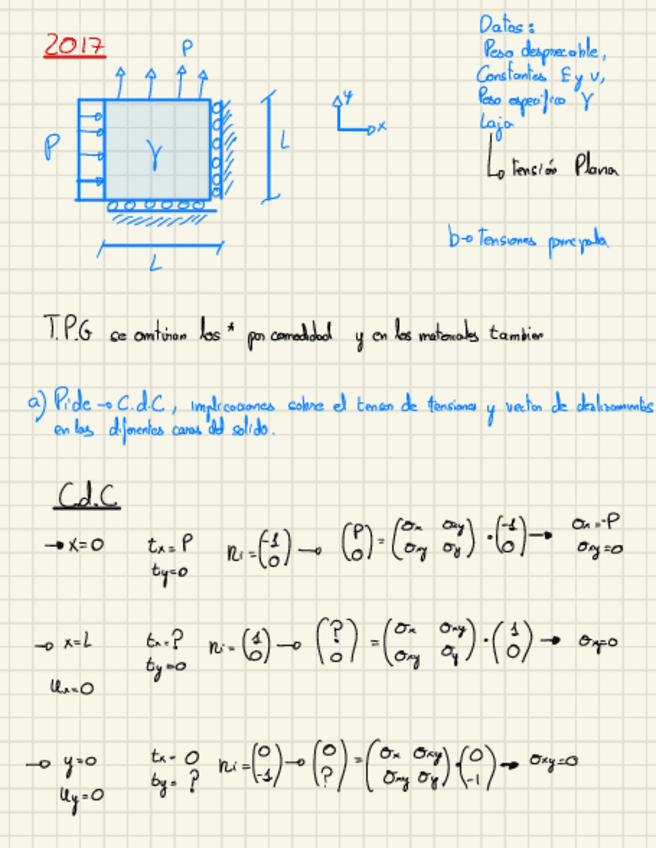 2017
P
Datos:
Peso despreciable,
Constantes E y ν,
Peso específico γ
Laja
↳ tensión Plana
P
γ
L
y
x
L
b→ Tensiones
T.P.G se omitiran los * por comodidad y en los materiales tambien
a) Pide → C.d.C, implicaciones sobre el tensor de tensiones y vector de deslizamientos
en las diferentes caras del solido.
C.d.C
→ x=0 tx = P ty=0 ni = (-1 0) → (P 0) = (σx σxy σxy σy) · (-1 0) → σx = -P σxy=0
→ x=L tx = ? ty=0 ni = (1 0) → (? 0) = (σx σxy σxy σy) · (1 0) → σxy=0
ux=0
→ y=0 tx = 0 ty = ? ni = (0 -1) → (0 ?) = (σx σxy σxy σy) · (0 -1) → σxy=0
uy=0